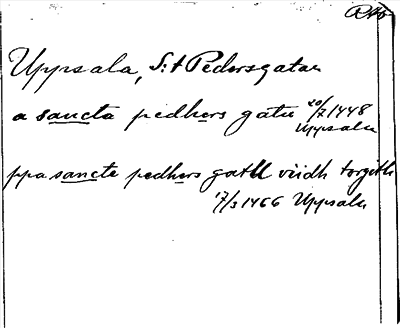 Uppsala, S:t Pedersgatan
a sancta pedhers gatu 20/7 1448
Uppsala
ppa sancte pedhers gatu viidh torgith
17/3 1466 Uppsala